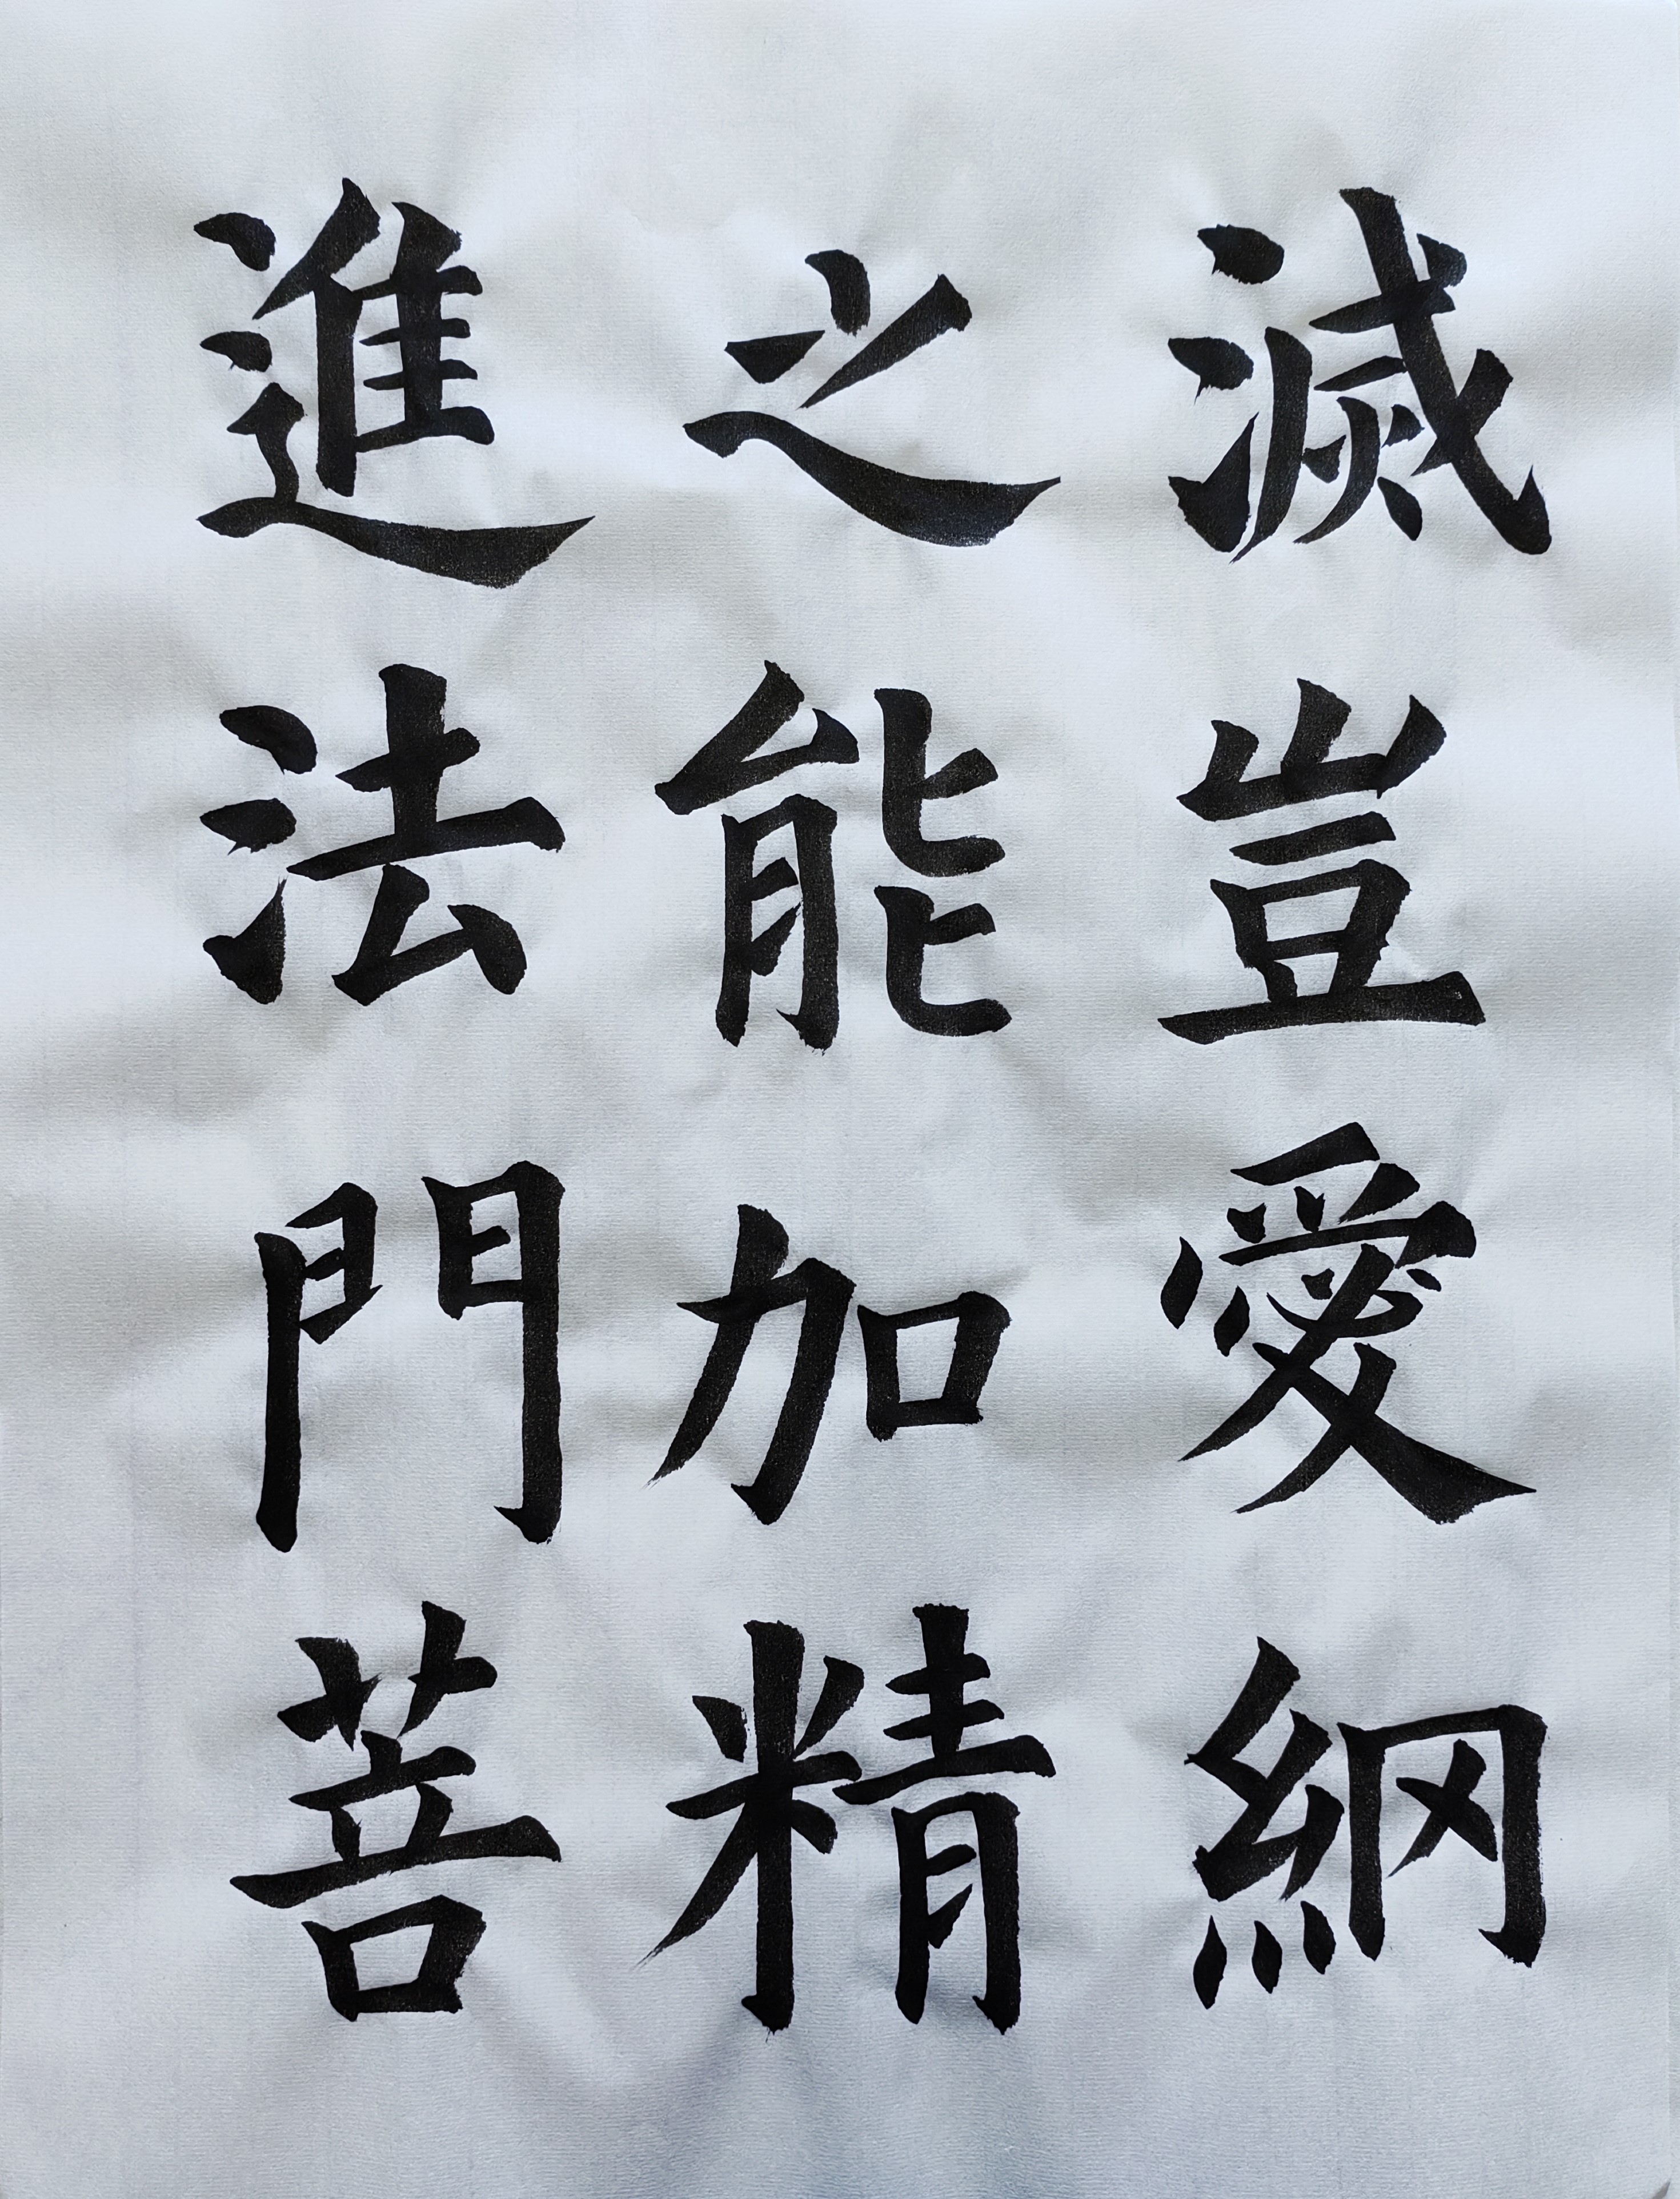 滅豈愛網
之能加精
進法門菩